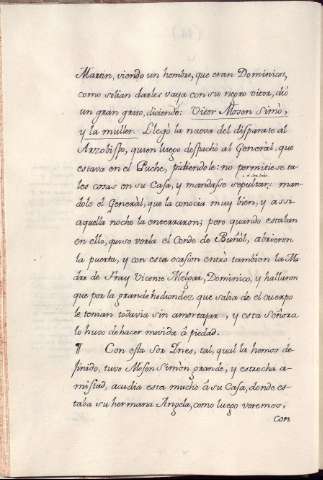 Martin, viendo un hombre, que eran Dominicos,
como solian darles vaya con su negro vitor, dió
un gran grito, diciendo: Vitor Mosen Simò,
y la muller. Llegò la nueva del disparate al
Arzobispo, quien luego despachó al General, que
estava en el Puche, pidiendole: no permitiese ta-
les cosas en su Casa, y mandasse sepultar: man-
dolo el General, que la conocia muy bien, y assi
aquella noche la enterraron; pero quando estaban
en ello, quiso verla el Conde de Buñol, abrieron
la puerta, y con esta ocasion entrò tambien la Ma-
dre de Fray Vicente Melgar, Dominico, y hallaron
que por la grande hediondez que salia de el cuerpo
le tenian todavia sin amortajar, y esta Señora
lo huvo de hacer movida á piedad.
¶ Con esta Sor Ines, tal, qual la hemos de-
finido, tuvo Mosen Simon grande, y estrecha a-
mistad, acudia esta mucho à su Casa, donde es-
taba su hermana Angela, como luego veremos;
con